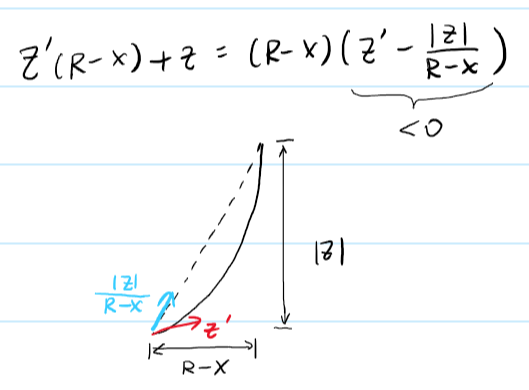 z'(R-x)+z = (R-x)(z' - |z|/R-x)
<0
|z|
|z|/R-x
z'
R-x